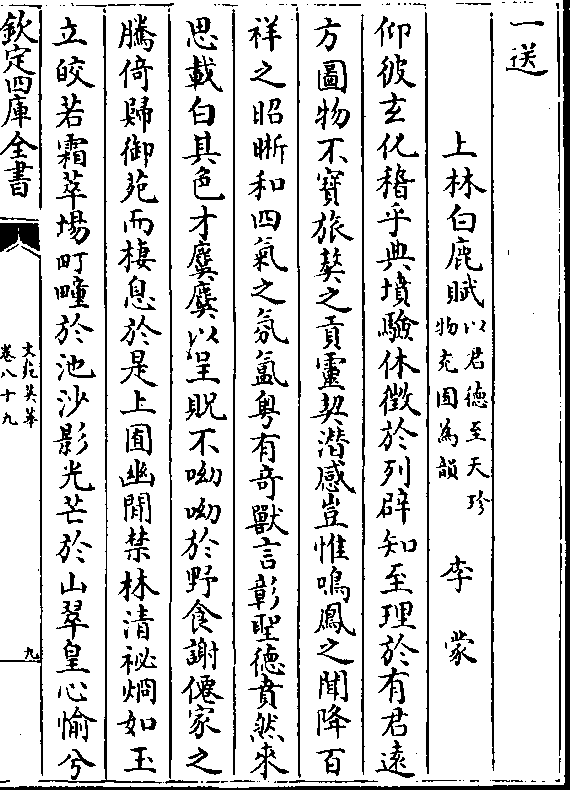 一送
上林白鹿賦以君德至天珍物充囿為韻 李蒙
仰彼玄化稽乎典墳驗休徵於列辟知至理於有君遠
方圖物不寶旅獒之貢靈契潛感豈惟鳴鳳之聞降百
祥之昭晰和四氣之氛氳粤有奇獸言彰聖德賁然來
思載白其色才麌麌以呈貺不呦呦於野食謝僊家之
騰倚歸御苑而棲息於是上囿幽閒禁林清祕烱如玉
立皎若霜萃場町畽於池沙影光芒於山翠皇心愉兮
欽定四庫全書
文苑英華
卷八十九
九